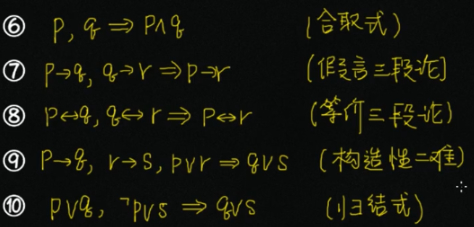 ⑥ p, q ⇒ p∧q (合取式)
⑦ p→q, q→r ⇒ p→r (假言三段论)
⑧ p↔q, q↔r ⇒ p↔r (等价三段论)
⑨ p→q, r→s, p∨r ⇒ q∨s (构造性二难)
⑩ p∨q, ¬p∨s ⇒ q∨s (归结式)